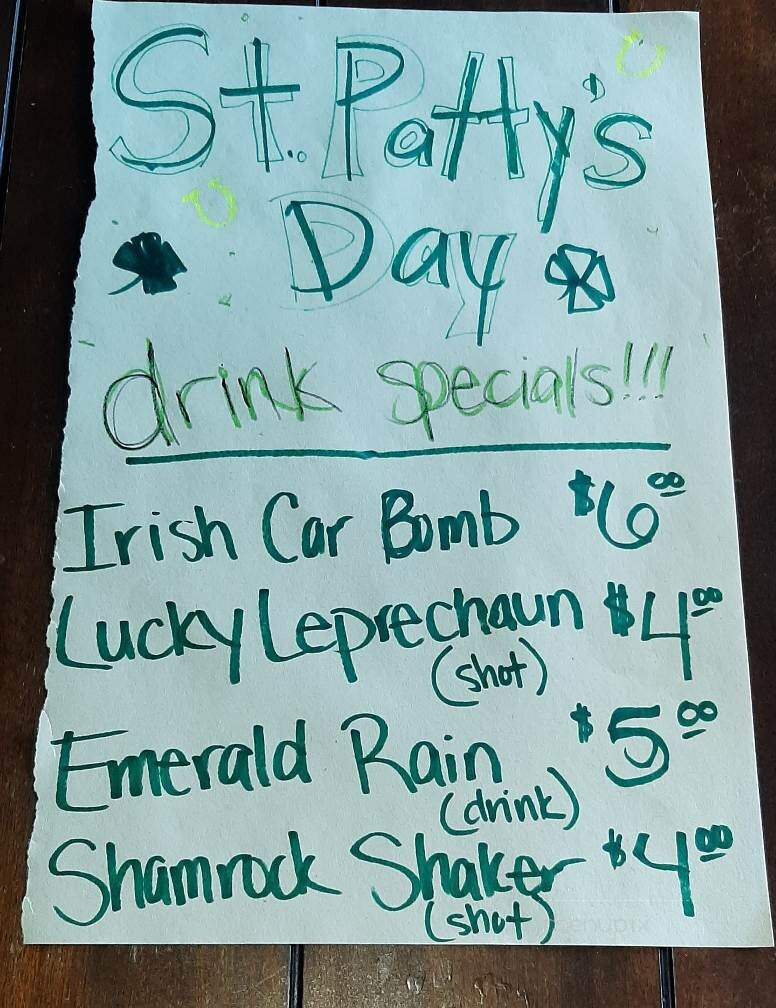 St. Patty's
Day
drink specials!!!
Irish Car Bomb $6.00
Lucky Leprechaun $4.00
(shot)
Emerald Rain $5.00
(drink)
Shamrock Shaker $4.00
(shot)